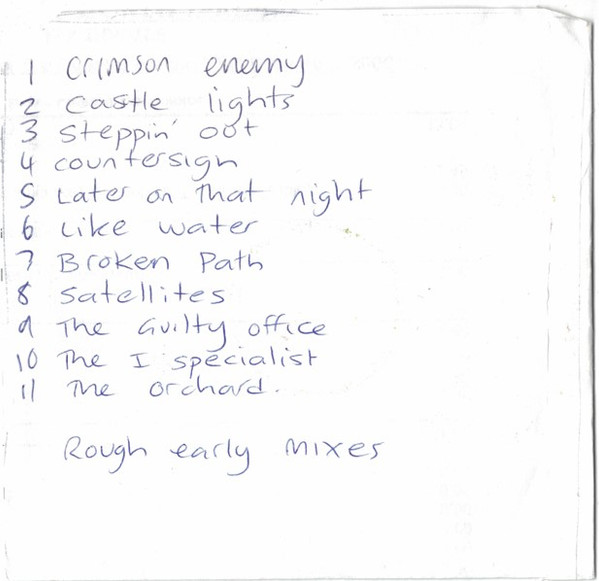 1 Crimson enemy
2 Castle lights
3 Steppin' out
4 countersign
5 Later on that night
6 Like water
7 Broken Path
8 Satellites
9 The Guilty office
10 The I specialist
11 The orchard.
Rough early mixes